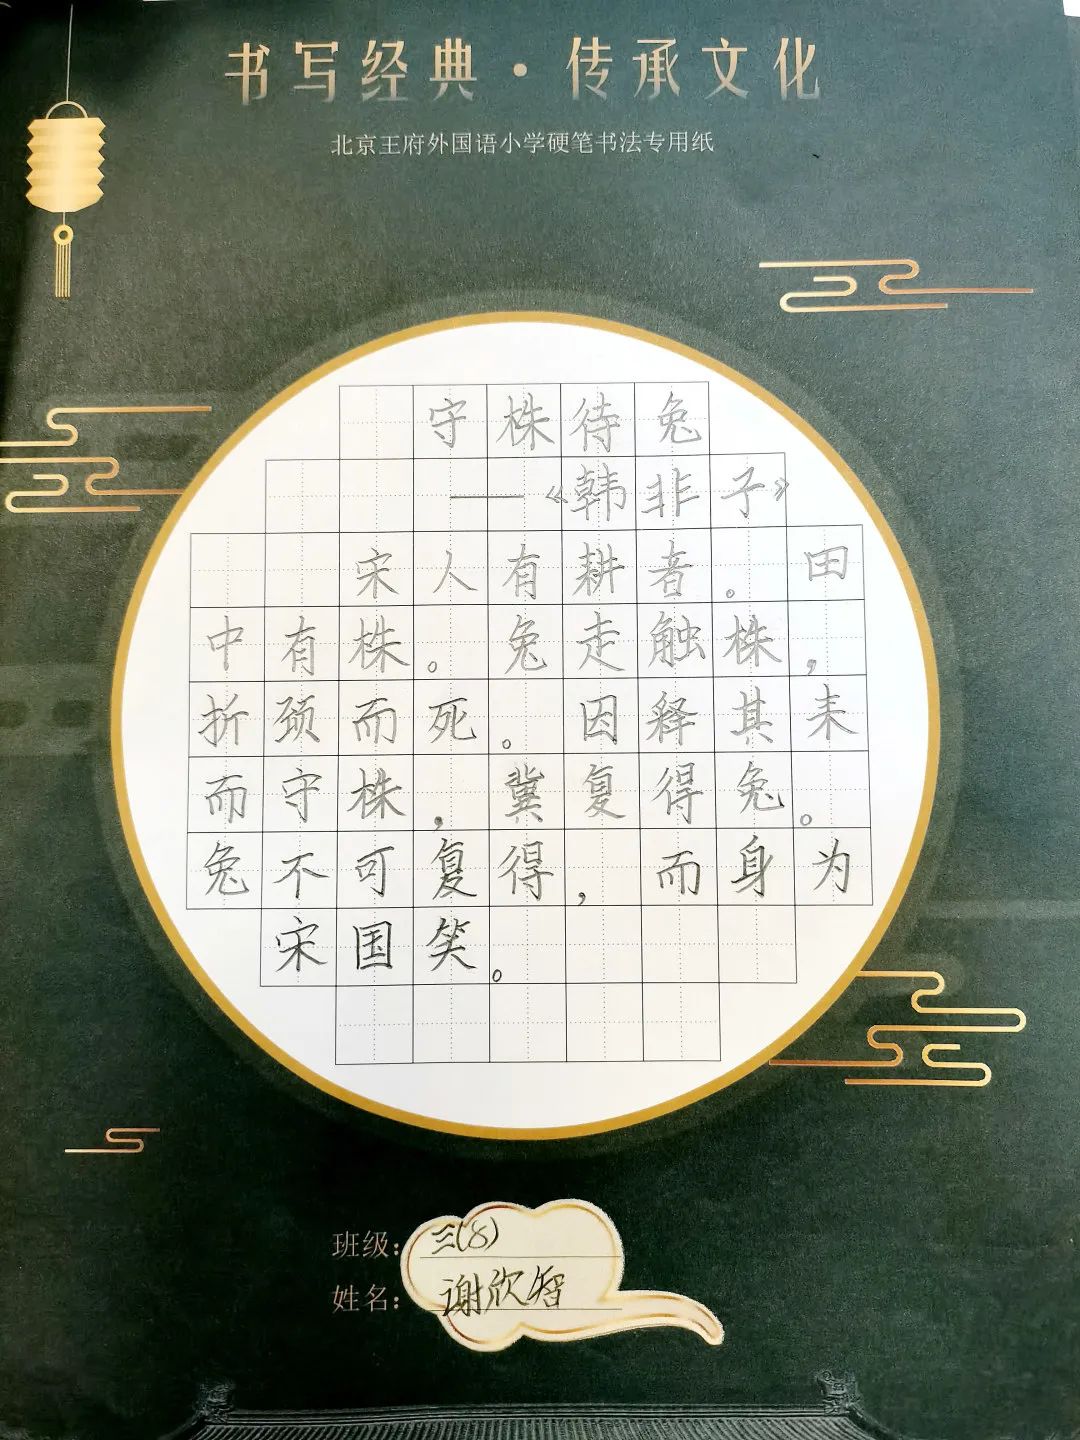 书写经典·传承文化
北京王府外国语小学硬笔书法专用纸
守株待兔
——《韩非子》
宋人有耕者。田
中有株。兔走触株,
折颈而死。因释其耒
而守株,冀复得兔。
兔不可复得,而身为
宋国笑。
班级:三(8)
姓名:谢欣智